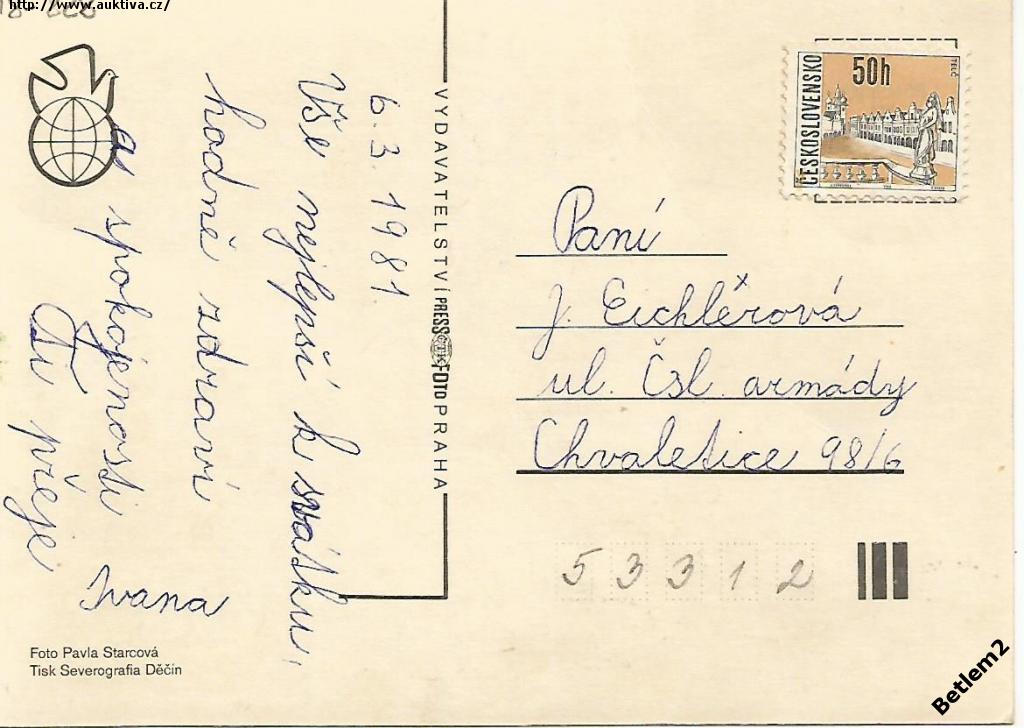 http://www.auktiva.cz/
6. 3. 1981
Vše nejlepší k svátku,
hodně zdraví
a spokojenosti
Ti přeje
Ivana
Foto Pavla Starcová
Tisk Severografia Děčín
VYDAVATELSTVÍ PRESSFOTO PRAHA
ČESKOSLOVENSKO
50h
TELČ
Paní
J. Eichlěrová
ul. Čsl. armády
Chvaletice 98/6
53312
Betlem2